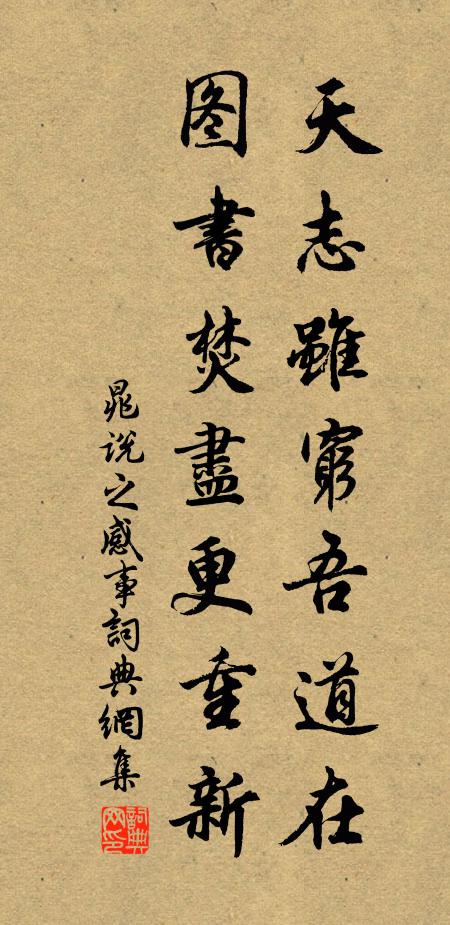 天志雖窮吾道在
图書焚盡更重新
晁說之感事詞典網集
詞典网印